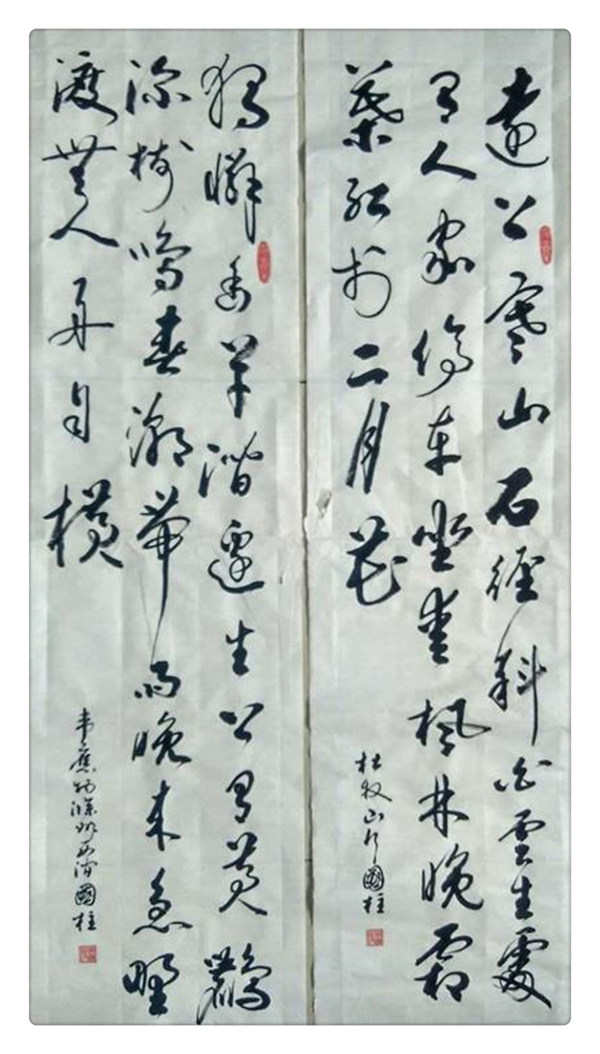 遠上寒山石徑斜白雲生處
有人家停車坐愛楓林晚霜
葉紅於二月花
杜牧山行國柱
獨憐幽草澗邊生上有黃鸝
深樹鳴春潮帶雨晚來急野
渡無人舟自橫
韋應物滁州西澗國柱